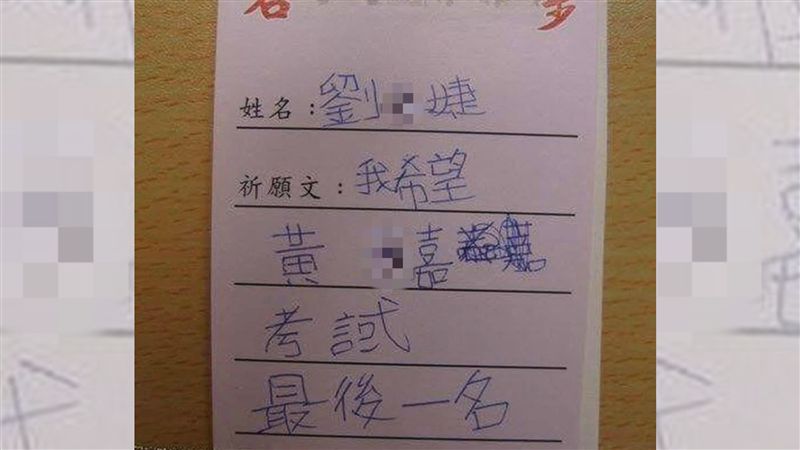 姓名：劉婕
祈願文：我希望
黃嘉
考試
最後一名